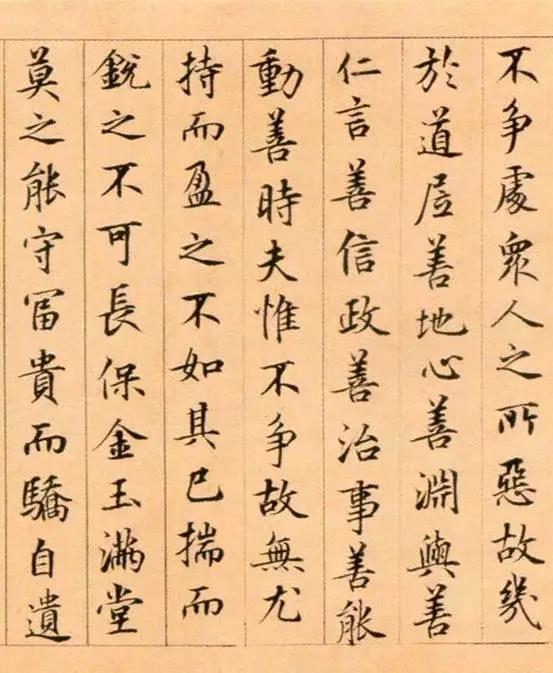 不争處衆人之所惡故幾
於道居善地心善淵與善
仁言善信政善治事善能
動善時夫惟不争故無尤
持而盈之不如其已揣而
銳之不可長保金玉滿堂
莫之能守富貴而驕自遺